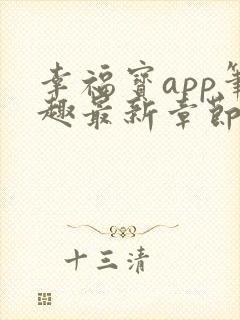 幸福宝app笔
趣最新章节
十三清